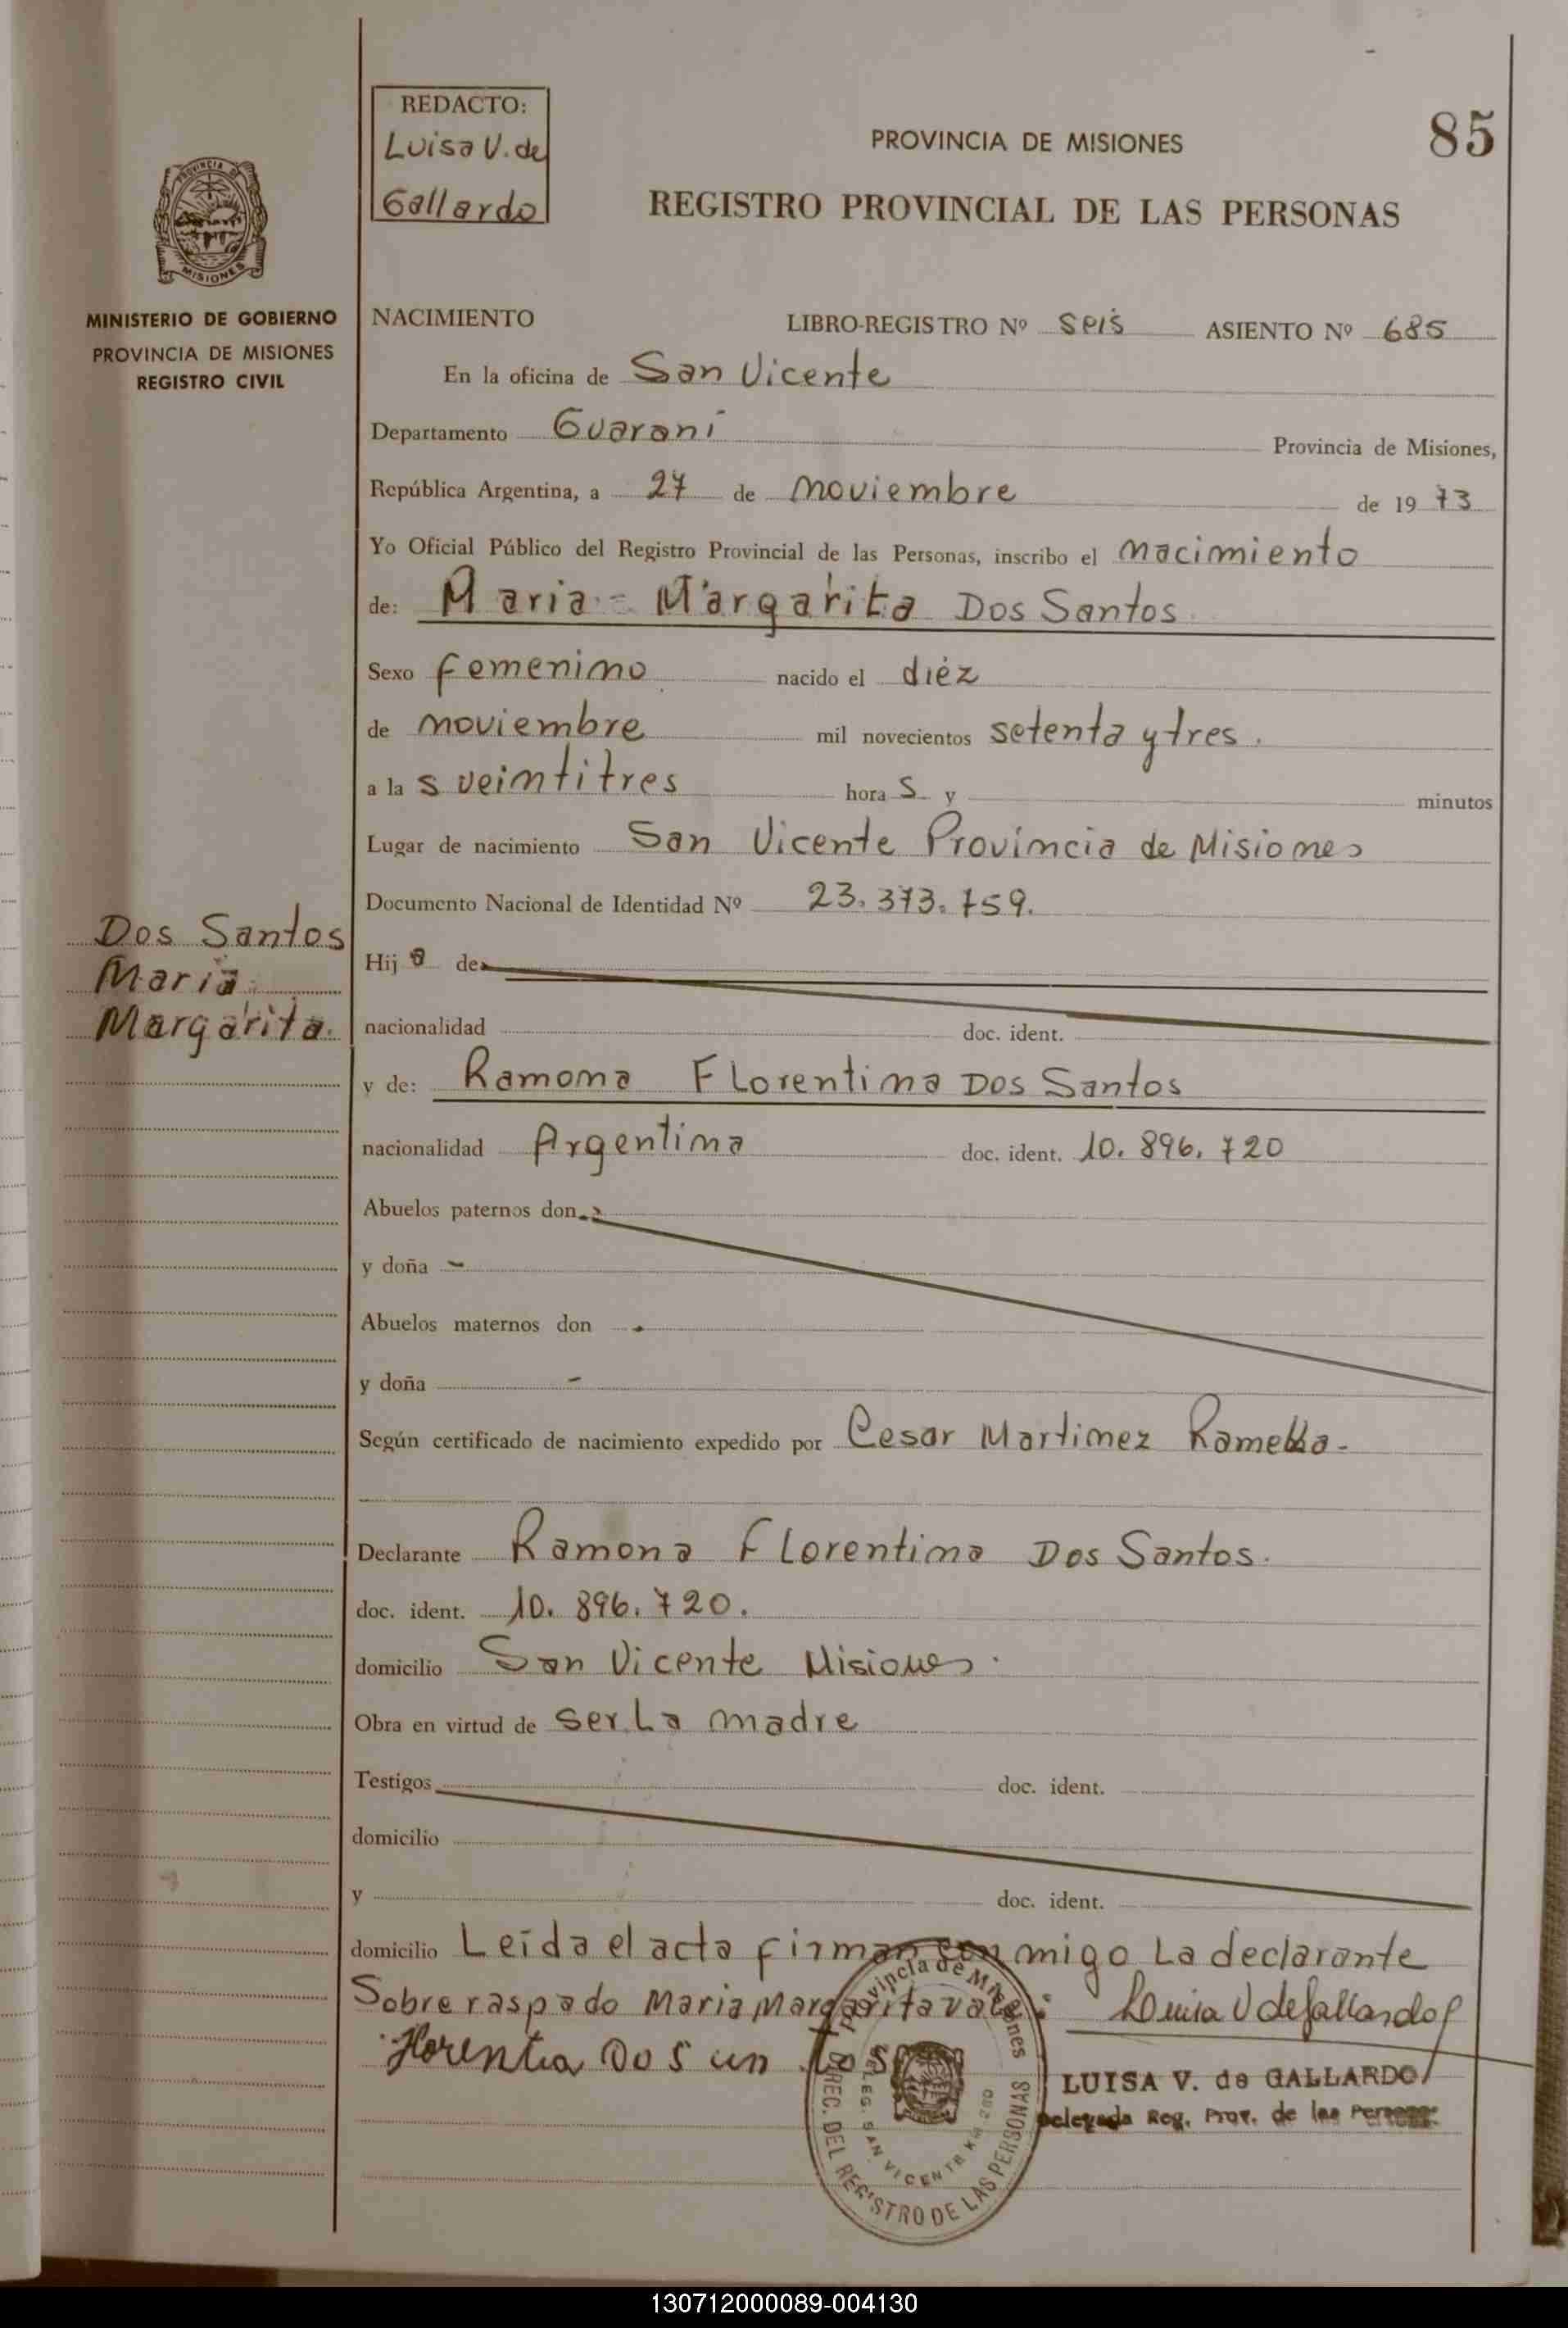 REDACTO:
Luisa V. de
Gallardo
PROVINCIA DE MISIONES
85
REGISTRO PROVINCIAL DE LAS PERSONAS
PROVINCIA D
MISIONES
MINISTERIO DE GOBIERNO
PROVINCIA DE MISIONES
REGISTRO CIVIL
NACIMIENTO LIBRO-REGISTRO Nº seis ASIENTO Nº 685
En la oficina de San Vicente
Departamento Guaraní Provincia de Misiones,
República Argentina, a 27 de noviembre de 19 73
Yo Oficial Público del Registro Provincial de las Personas, inscribo el nacimiento
de: Maria - Margarita Dos Santos
Sexo femenino nacido el diéz
de noviembre mil novecientos setenta y tres.
a la s veintitres hora s y minutos
Lugar de nacimiento San Vicente Província de Misiones
Documento Nacional de Identidad Nº 23.373.759.
Dos Santos
Maria
Margarita.
Hij a de
nacionalidad doc. ident.
y de: Ramona Florentina Dos Santos
nacionalidad Argentina doc. ident. 10.896.720
Abuelos paternos don
y doña -
Abuelos maternos don
y doña -
Según certificado de nacimiento expedido por Cesar Martinez Ramella-
Declarante Ramona Florentina Dos Santos.
doc. ident. 10.896.720.
domicilio San Vicente Misiones.
Obra en virtud de ser La madre
Testigos doc. ident.
domicilio
y doc. ident.
domicilio Leída el acta firman con migo La declarante
Sobre raspado Maria Margarita vale: Luisa V de Gallardo
Florentia Dos un tos
LUISA V. de GALLARDO
Delegada Reg. Prov. de las Personas
Provincia de Misiones
DIREC. DEL REGISTRO DE LAS PERSONAS
DELEG. SAN VICENTE KM 280
130712000089-004130